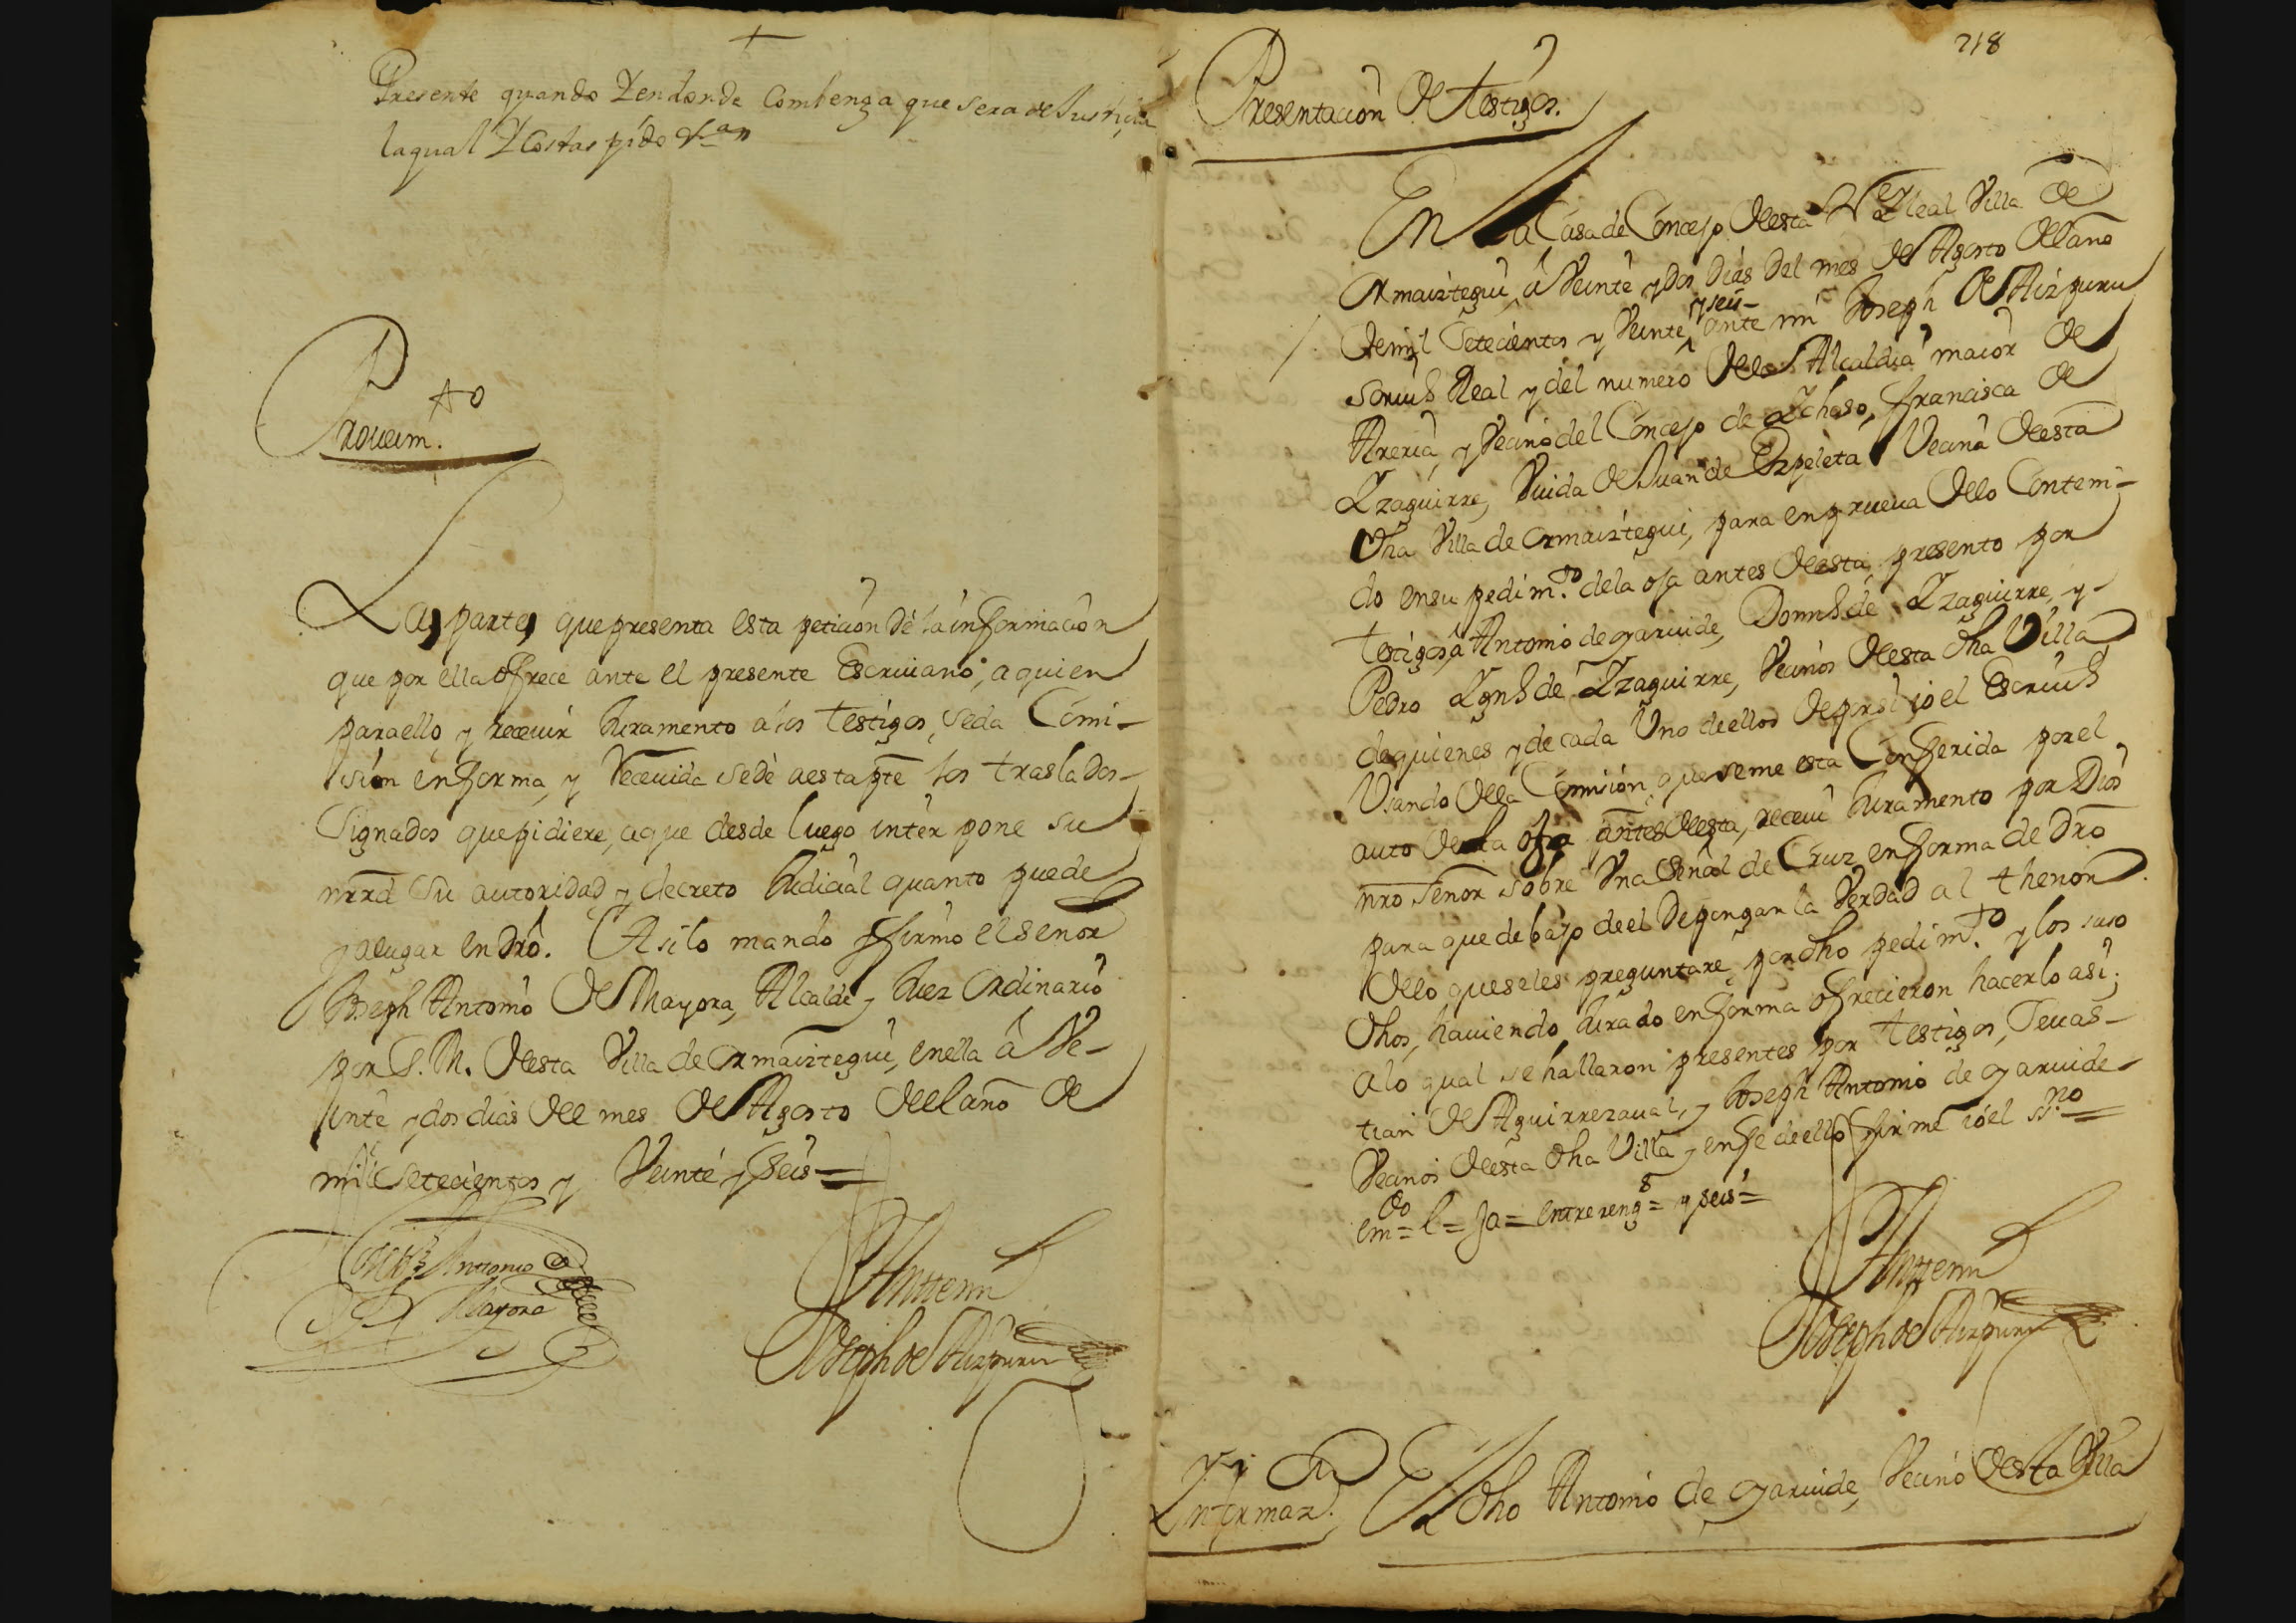 Presente quando Y endonde Combenga que sera de Justicia
laqual Y Costas pido &ª
Proueim.to
La parte, que presenta esta peticion dè la informacion
que por ella ofrece ante el presente Escriuano, a quien
para ello, y receuir Juramento a los testigos, seda Comi-
sion en forma, y Receuida sedè aesta pte los traslados
Signados que pidiere, a que desde luego inter pone su
mrrd Su autoridad y decreto Judicial quanto puede
y alugar en dro. Asi lo mandò y firmo el señor
Joseph Antonio de Mayora, Alcalde y Juez Ordinario
por S. M. desta Villa de Ormaiztegui, enella â Ve-
inte y dos dias del mes de Agosto del año de
mil Setecientos y Veinte y Seis =
Joseph Antonio de
Mayora
Antte mi
Joseph de Aizpuru
218
Presentacion de testigos.
En La Casa de Concejo desta N. y Leal Villa de
Ormaiztegui, â Veinte y dos dias del mes de Agosto del año
de mil Setecientos y Veinte, y seis ante mi Joseph de Aizpuru
scriuº Real y del numero de la Alcaldia maior de
Areria, y Vecino del Concejo de Ychaso, francisca de
Yzaguirre, Viuda de Juan de Ezpeleta Vecina desta
dha Villa de Ormaiztegui, para en prueua de lo Conteni-
do en su pedim.to de la oja antes desta, presento por
testigos, â Antonio de Garuide, Domº de Yzaguirre, y
Pedro Ygnº de Yzaguirre, Vecinos desta dha Villa
de quienes y de cada Uno de ellos de por si io el Escriuº
Usando de la Comision, que se me esta Conferida por el
auto de la oja antes desta, receui Juramento por Dios
nro señor sobre Una Señal de Cruz en forma de dro
para que debajo de el depongan la Verdad al thenor
de lo que seles preguntare por dho pedim.to y los suso
dhos, hauiendo Jurado en forma ofrecieron hacerlo asi;
a lo qual se hallaron presentes por testigos, Seuas-
tian de Aguirrezaual, y Joseph Antonio de Garuide
Vecinos desta dha Villa, y en fe de ello firmè io el ss.no
em.do = l = ja = entre reng.s = y seis =
Antte mi
Joseph de Aizpuru
Ynformaz.on
El dho Antonio de Garuide, Vecino desta Villa